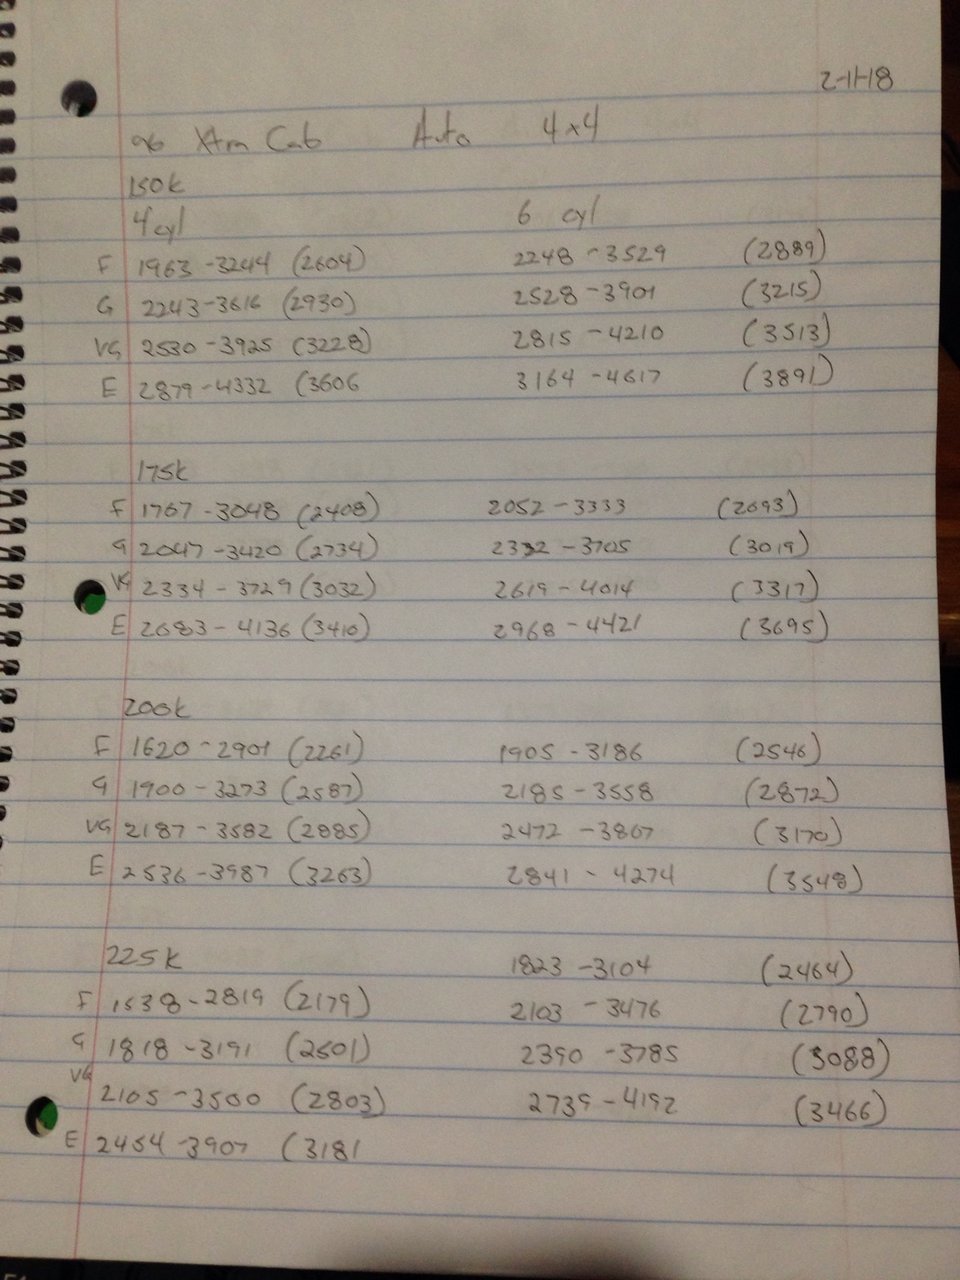 2-11-18
96 Xtra Cab Auto 4x4
150k
4cyl 6 cyl
F 1963-3244 (2604) 2248-3529 (2889)
G 2243-3616 (2930) 2528-3901 (3215)
VG 2530-3925 (3228) 2815-4210 (3513)
E 2879-4332 (3606 3164-4617 (3891)
175k
F 1767-3048 (2408) 2052-3333 (2693)
G 2047-3420 (2734) 2332-3705 (3019)
VG 2334-3729 (3032) 2619-4014 (3317)
E 2683-4136 (3410) 2968-4421 (3695)
200k
F 1620-2901 (2261) 1905-3186 (2546)
G 1900-3273 (2587) 2185-3558 (2872)
VG 2187-3582 (2885) 2472-3867 (3170)
E 2536-3987 (3263) 2841-4274 (3548)
225k 1823-3104 (2464)
F 1538-2819 (2179) 2103-3476 (2790)
G 1818-3191 (2501) 2390-3785 (3088)
VG 2105-3500 (2803) 2739-4192 (3466)
E 2454-3907 (3181